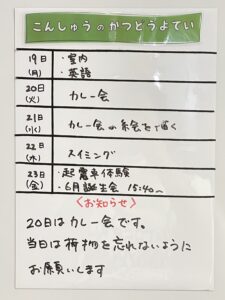 こんしゅうのかつどうよてい
19日(月)
・室内
・英語
20日(火)
カレー会
21日(水)
カレー会の絵を描く
22日(木)
スイミング
23日(金)
・起震車体験
・6月誕生会 15:40〜
〈お知らせ〉
20日はカレー会です。
当日は荷物を忘れないように
お願いします